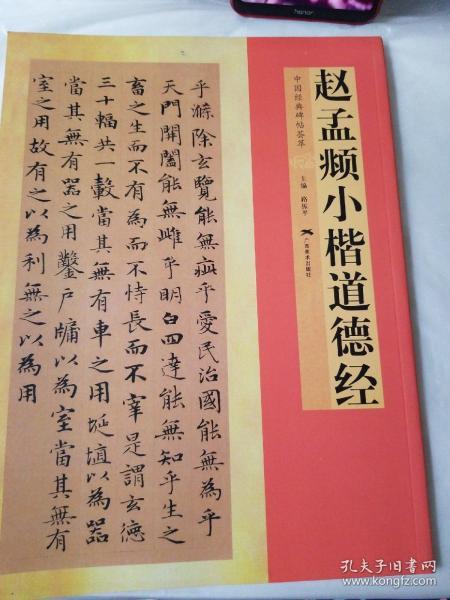 赵孟頫小楷道德经
中国经典碑帖荟萃
主编 路振平
广西美术出版社
乎滌除玄覽能無疵乎愛民治國能無為乎
天門開闔能無雌乎明白四達能無知乎生之
畜之生而不有為而不恃長而不宰是謂玄德
三十輻共一轂當其無有車之用埏埴以為器
當其無有器之用鑿戶牖以為室當其無有
室之用故有之以為利無之以為用
honor
孔夫子旧书网
www.kongfz.com